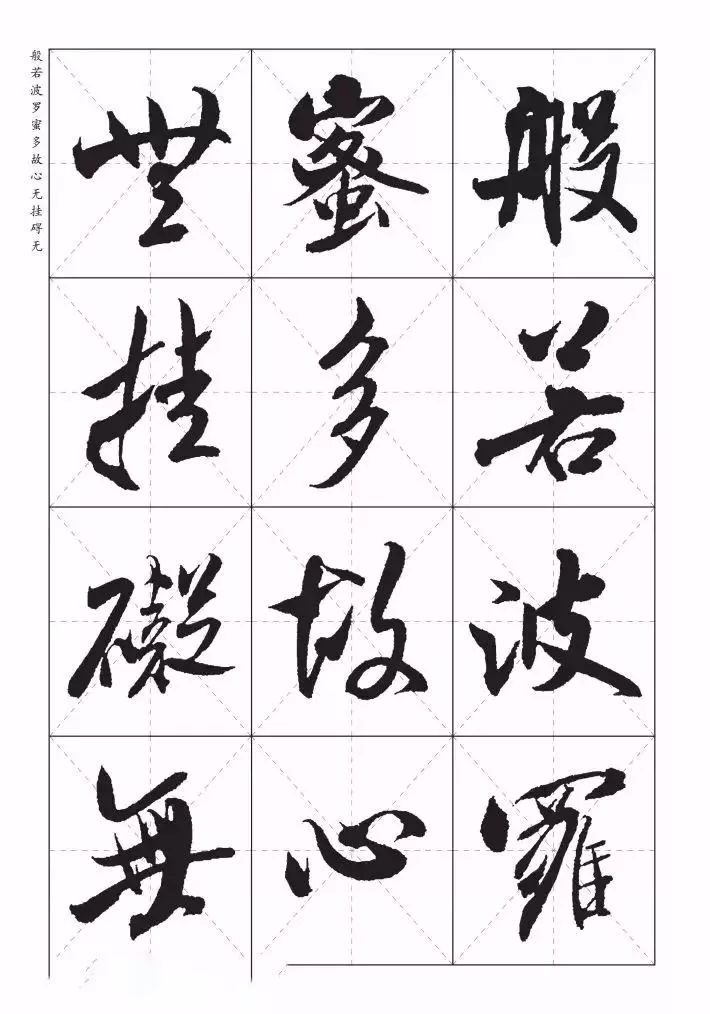 般若波罗蜜多故心无挂碍无
般若波羅
蜜多故心
無挂礙無